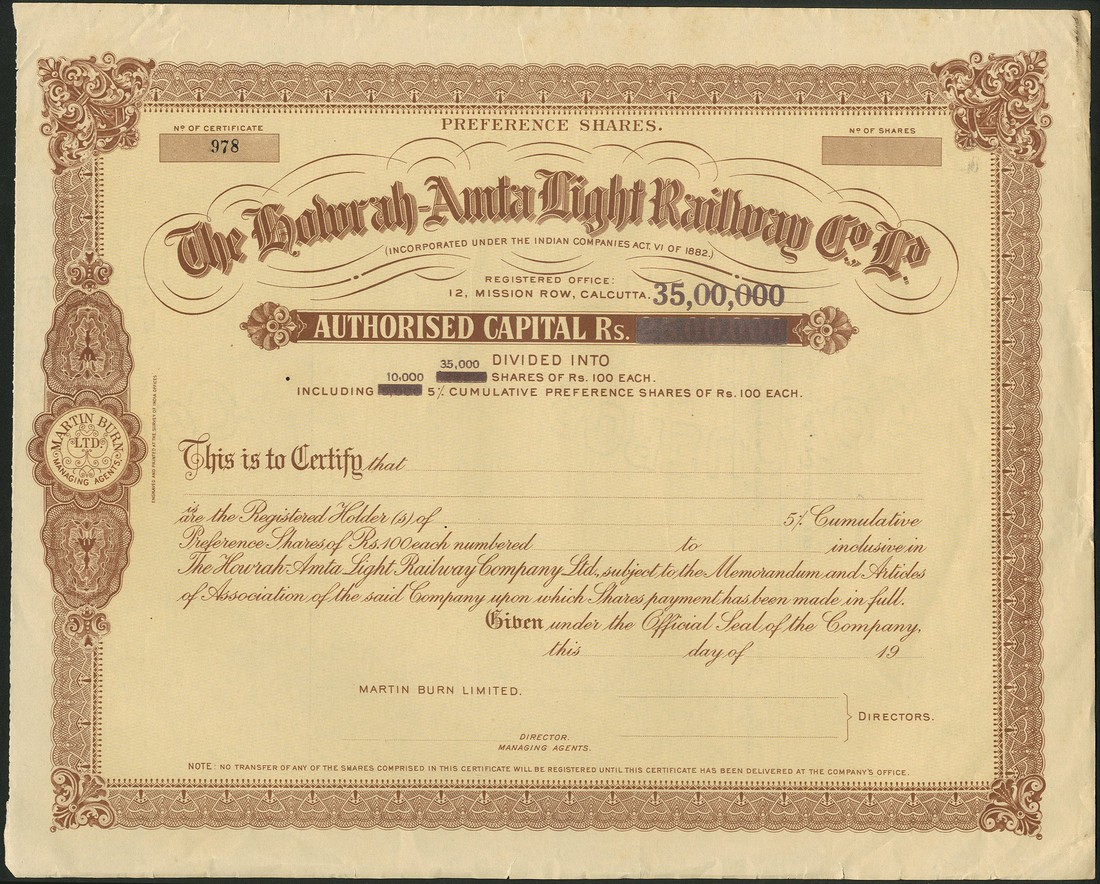 PREFERENCE SHARES.
No OF CERTIFICATE
978
No OF SHARES
The Howrah-Amta Light Railway Co., Ld.
(INCORPORATED UNDER THE INDIAN COMPANIES ACT, VI OF 1882.)
REGISTERED OFFICE:
12, MISSION ROW, CALCUTTA.
35,00,000
AUTHORISED CAPITAL Rs.
35,000 DIVIDED INTO
10,000 SHARES OF Rs. 100 EACH.
INCLUDING 5% CUMULATIVE PREFERENCE SHARES OF Rs. 100 EACH.
MARTIN BURN
LTD.
MANAGING AGENTS.
ENGRAVED AND PRINTED AT THE SURVEY OF INDIA OFFICES.
This is to Certify that
is
are the Registered Holder(s) of 5% Cumulative
Preference Shares, of Rs. 100 each numbered to inclusive in
The Howrah-Amta Light Railway Company Ltd., subject to the Memorandum and Articles
of Association of the said Company upon which Shares payment has been made in full.
Given under the Official Seal, of the Company,
this day of 19
MARTIN BURN LIMITED.
DIRECTORS.
DIRECTOR.
MANAGING AGENTS.
NOTE: NO TRANSFER OF ANY OF THE SHARES COMPRISED IN THIS CERTIFICATE WILL BE REGISTERED UNTIL THIS CERTIFICATE HAS BEEN DELIVERED AT THE COMPANY'S OFFICE.